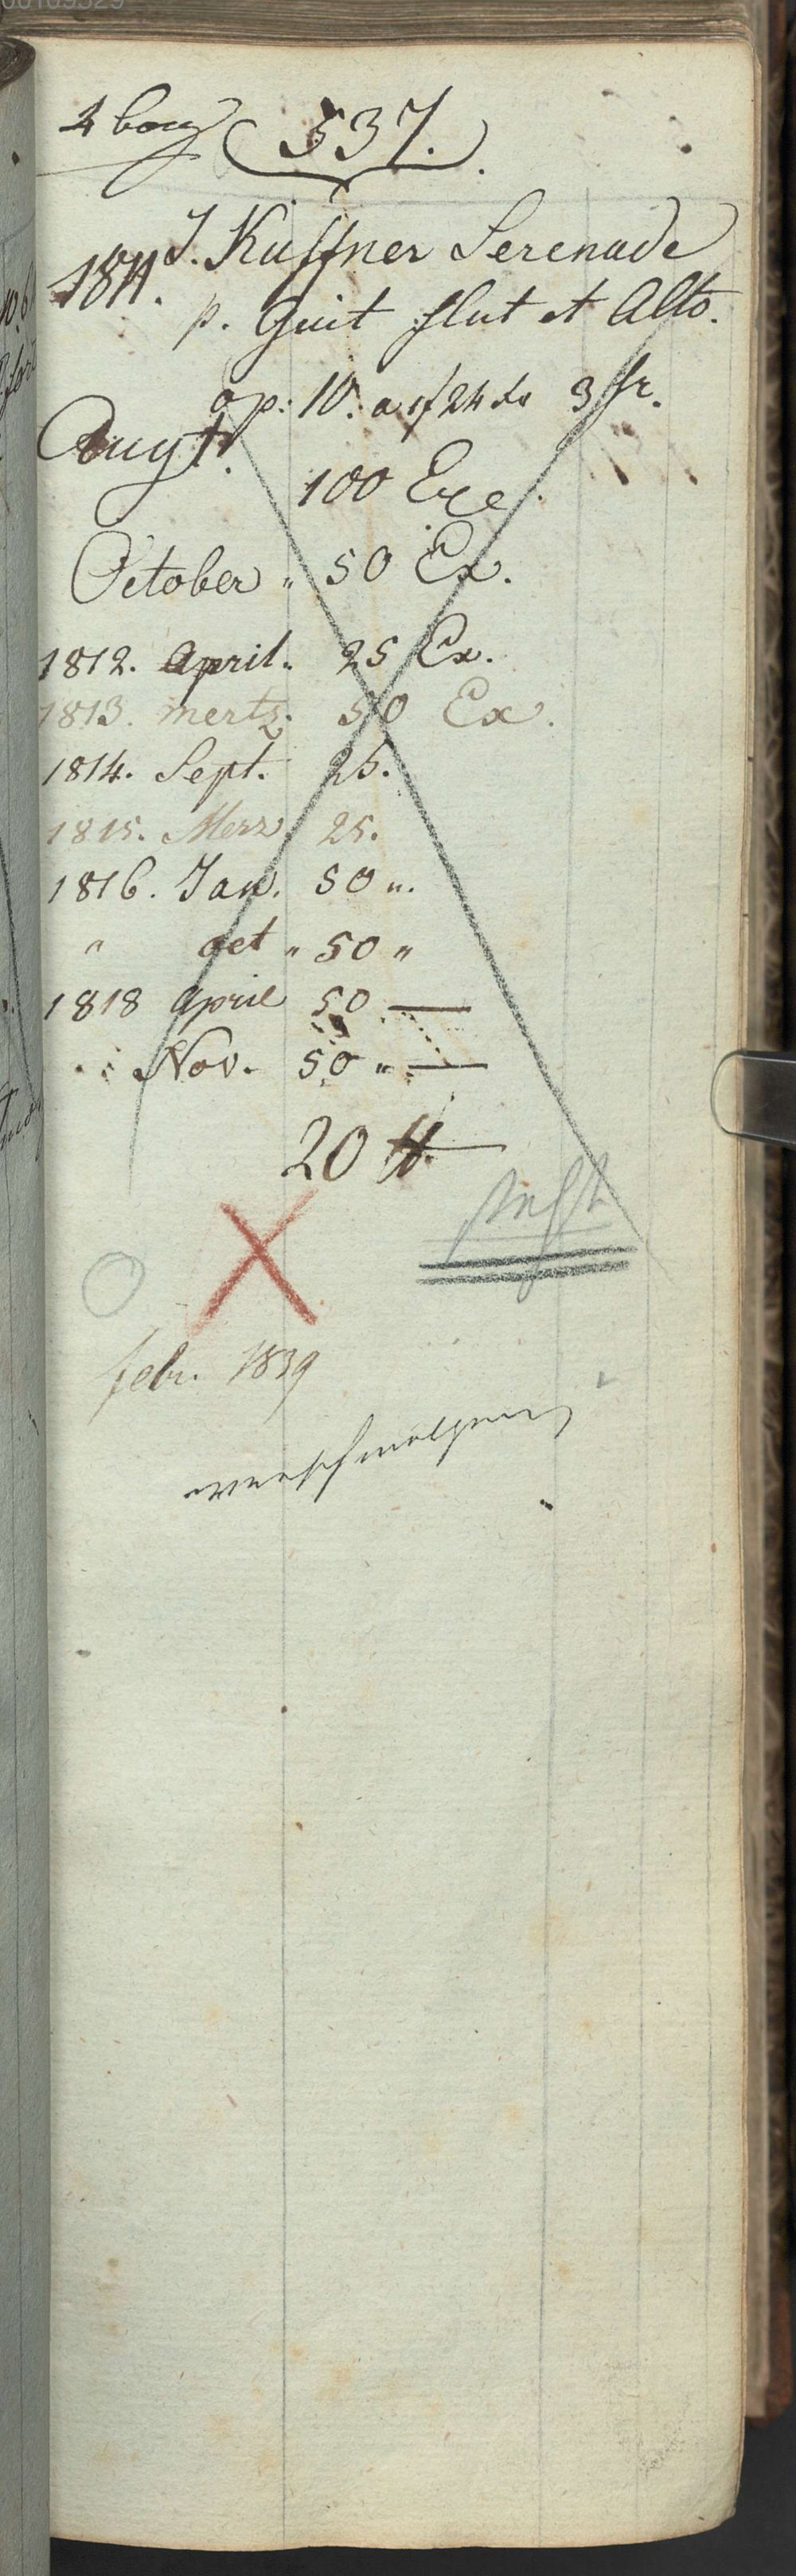 537.
1811. J. Küffner Serenade
p. Guit flut et Alto.
op: 10. a 1f 24 xr 3 fr.
Augt.
100 Exe.
October " 50 Ex.
1812. April. 25 Ex.
1813. Mertz. 50 Ex.
1814. Sept. 25.
1815. Merz 25.
1816. Jan. 50 ".
" oct " 50 "
1818 April 50 —
" Nov. 50 " —
20 ℔.
febr. 1839
verschmolzen